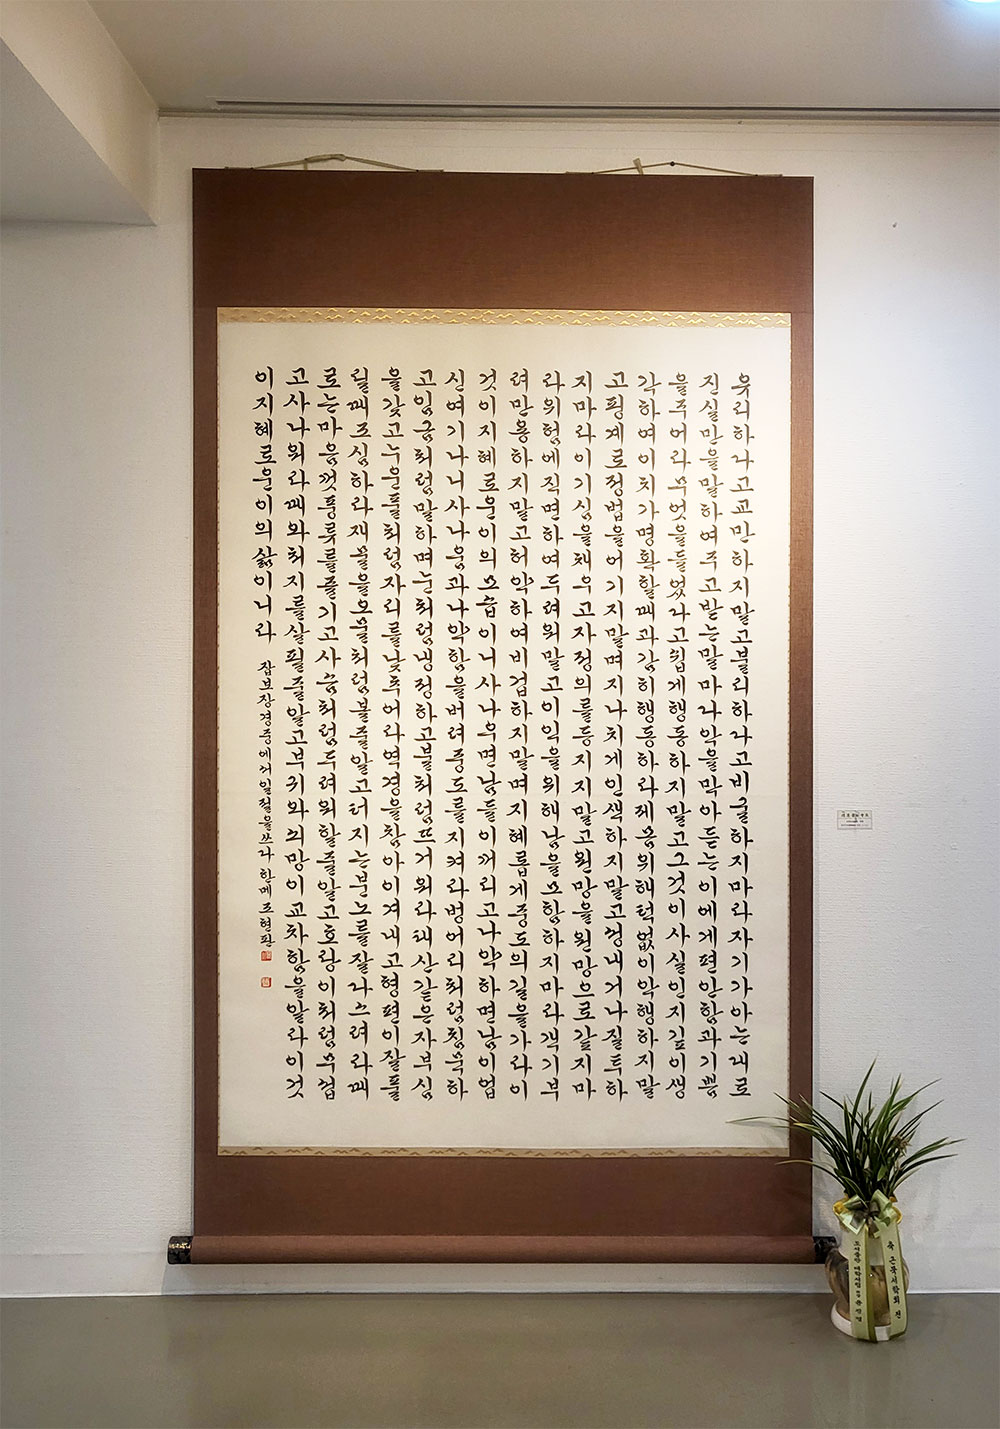 유리하다고교만하지말고불리하다고비굴하지마라자기가아는대로
진실만을말하여주고받는말마다악을막아듣는이에게편안함과기쁨
을주어라무엇을들었다고쉽게행동하지말고그것이사실인지깊이생
각하여이치가명확할때과감히행동하라제몸위해턱없이악행하지말
고핑계로정법을어기지말며지나치게인색하지말고성내거나질투하
지마라이기심을채우고자정의를등지지말고원망을원망으로갚지마
라위험에직면하여두려워말고이익을위해남을모함하지마라객기부
려만용하지말고허약하여비겁하지말며지혜롭게중도의길을가라이
것이지혜로운이의모습이니사나우면남들이꺼리고나약하면남이업
신여기나니사나움과나약함을버려중도를지켜라벙어리처럼침묵하
고임금처럼말하며눈처럼냉정하고불처럼뜨거워라태산같은자부심
을갖고누운풀처럼자리를낮추어라역경을참아이겨내고형편이잘풀
릴때조심하라재물을오물처럼볼줄알고터지는분노를잘다스려라때
로는마음껏풍류를즐기고사슴처럼두려워할줄알고호랑이처럼무섭
고사나워라때와처지를살필줄알고부귀와쇠망이교차함을알라이것
이지혜로운이의삶이니라 잡보장경중에서일절을쓰다 한메조현판
축 근묵서학회 전